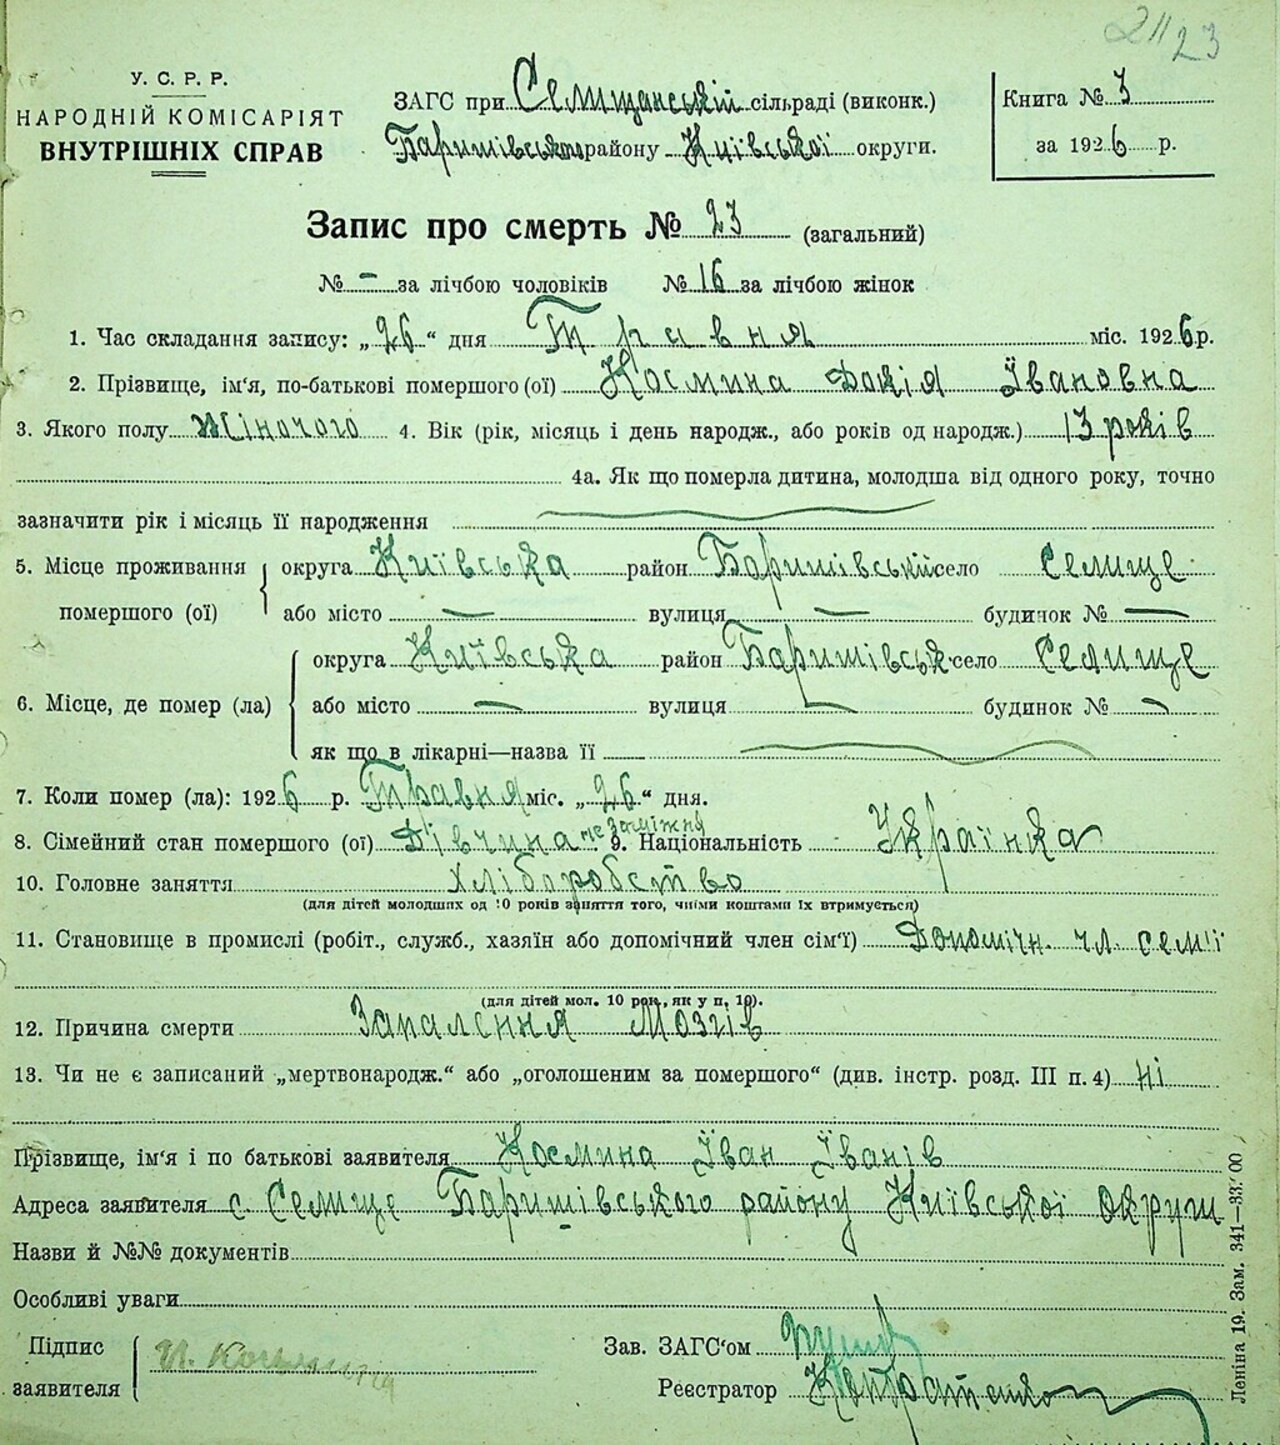 2112 23
У. С. Р. Р.
НАРОДНІЙ КОМІСАРІЯТ
ВНУТРІШНІХ СПРАВ
ЗАГС при Селищанській сільраді (виконк.)
Баришівського району Київської округи.
Книга № 3
за 1926 р.
Запис про смерть № 23 (загальний)
№ — за лічбою чоловіків № 16 за лічбою жінок
1. Час складання запису: „26“ дня Травня міс. 1926 р.
2. Прізвище, ім'я, по-батькові помершого (ої) Космина Докія Івановна
3. Якого полу Жіночого 4. Вік (рік, місяць і день народж., або років од народж.) 13 років
4а. Як що померла дитина, молодша від одного року, точно
зазначити рік і місяць її народження
5. Місце проживання помершого (ої) округа Київська район Баришівський село Селище
або місто — вулиця — будинок № —
6. Місце, де помер (ла) округа Київська район Баришівськ. село Селище
або місто — вулиця — будинок № —
як що в лікарні—назва її
7. Коли помер (ла): 1926 р. Травня міс. „26“ дня.
8. Сімейний стан помершого (ої) Дівчина незаміжня 9. Національність Українка
10. Головне заняття Хліборобство
(для дітей молодших од 10 років заняття того, чиїми коштами їх втримується)
11. Становище в промислі (робіт., служб., хазяїн або допомічний член сім'ї) Допомічн. чл. сем'ї
(для дітей мол. 10 рок., як у п. 10).
12. Причина смерти Запалення Мозгів
13. Чи не є записаний „мертвонародж.“ або „оголошеним за помершого“ (див. інстр. розд. III п. 4) ні
Прізвище, ім'я і по батькові заявителя Космина Іван Іванів
Адреса заявителя с. Селище Баришівського району Київської округи
Назви й №№ документів
Особливі уваги
Підпис заявителя И. Космина
Зав. ЗАГС'ом
Реєстратор
Леніна 19. Зам. 341—33.000